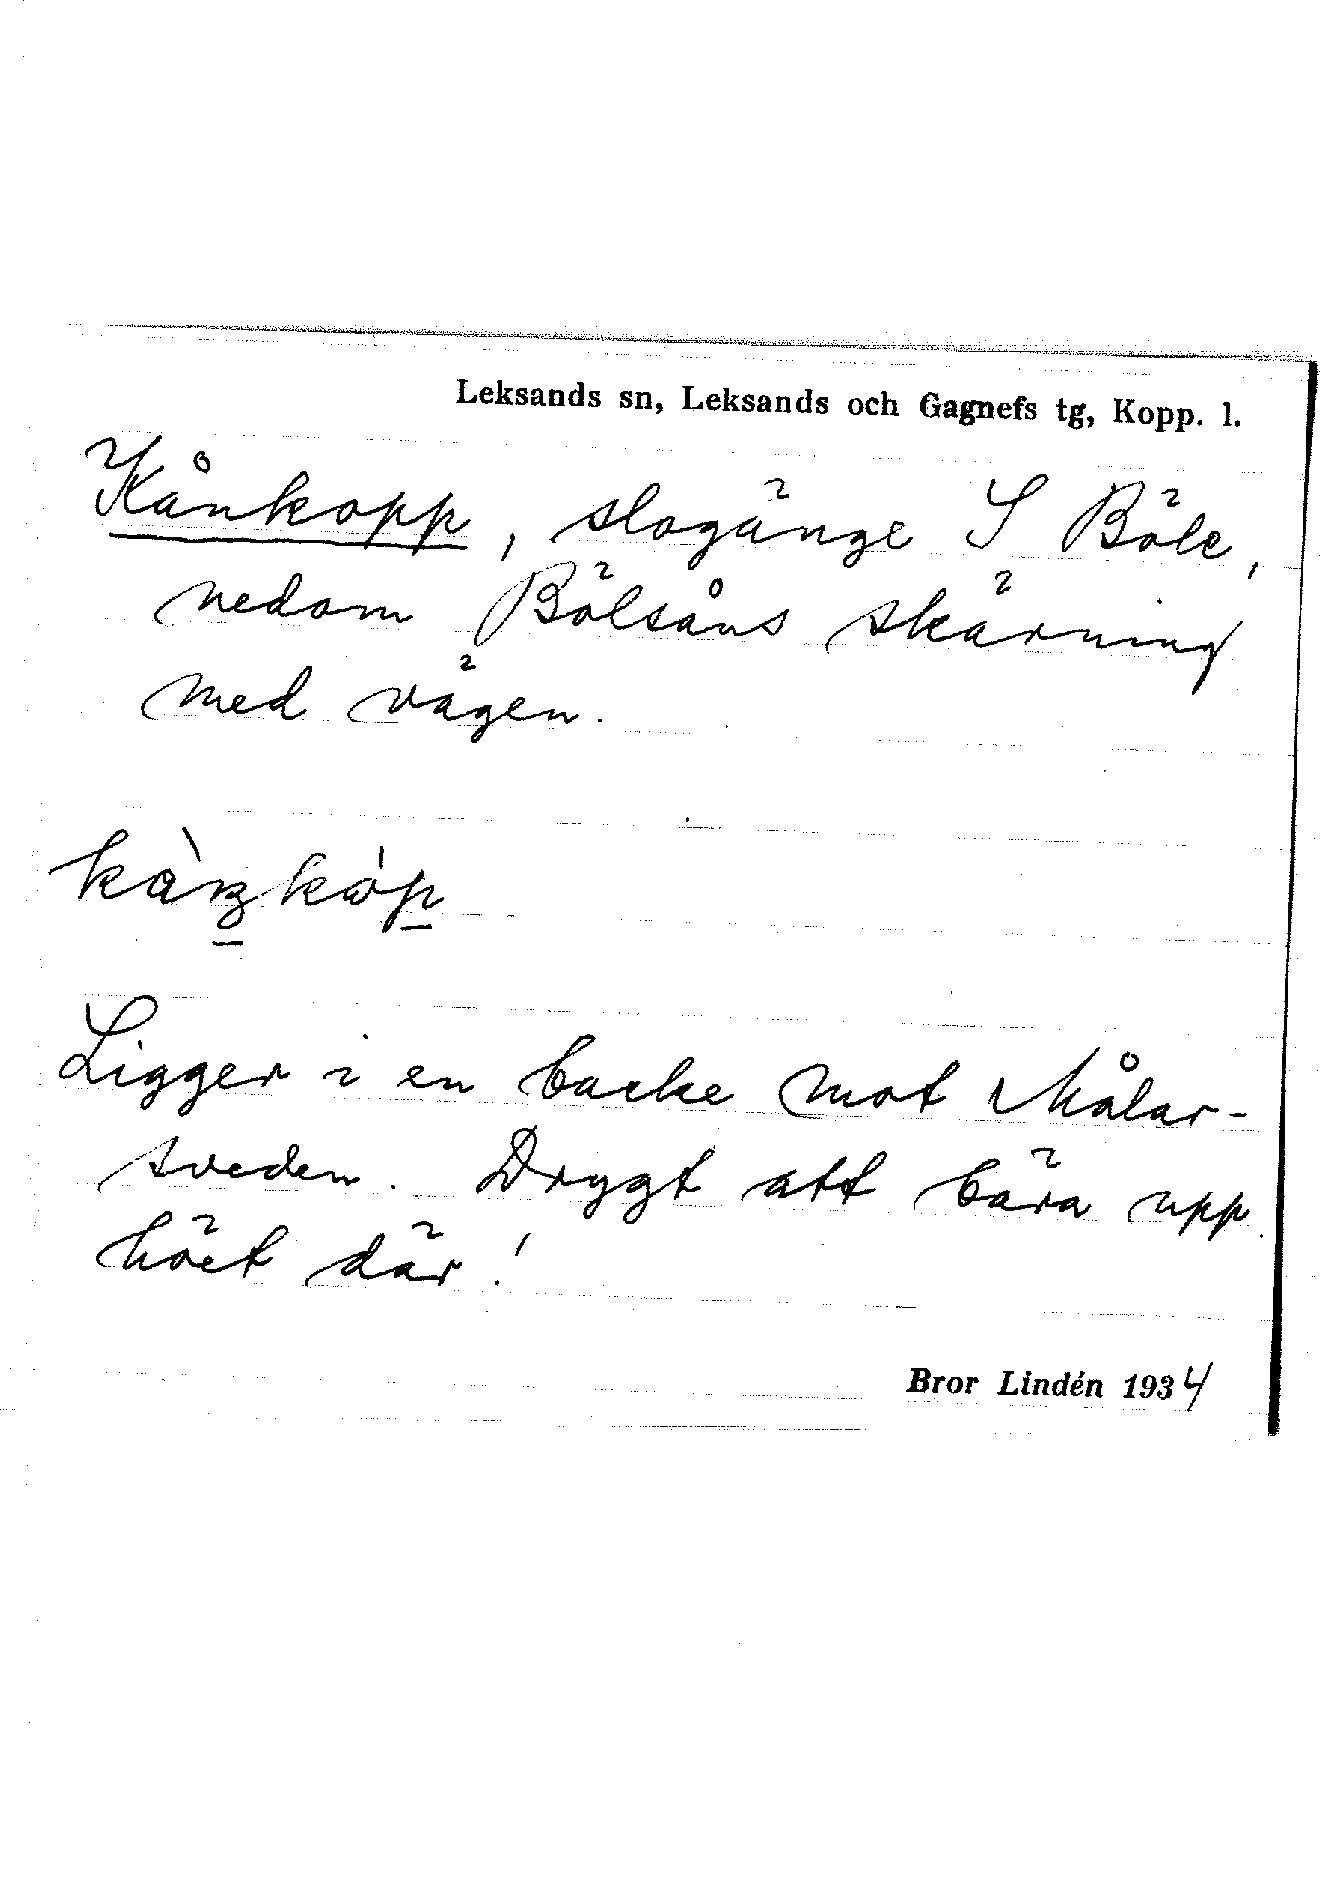 Leksands sn, Leksands och Gagnefs tg, Kopp. l.
Kånkopp, slogänge S Böle,
nedom Bölsåns skärning
med vägen.
Ligger i en backe mot Målar-
sveden. Drygt att bära upp
höet där!
Bror Lindén 1934